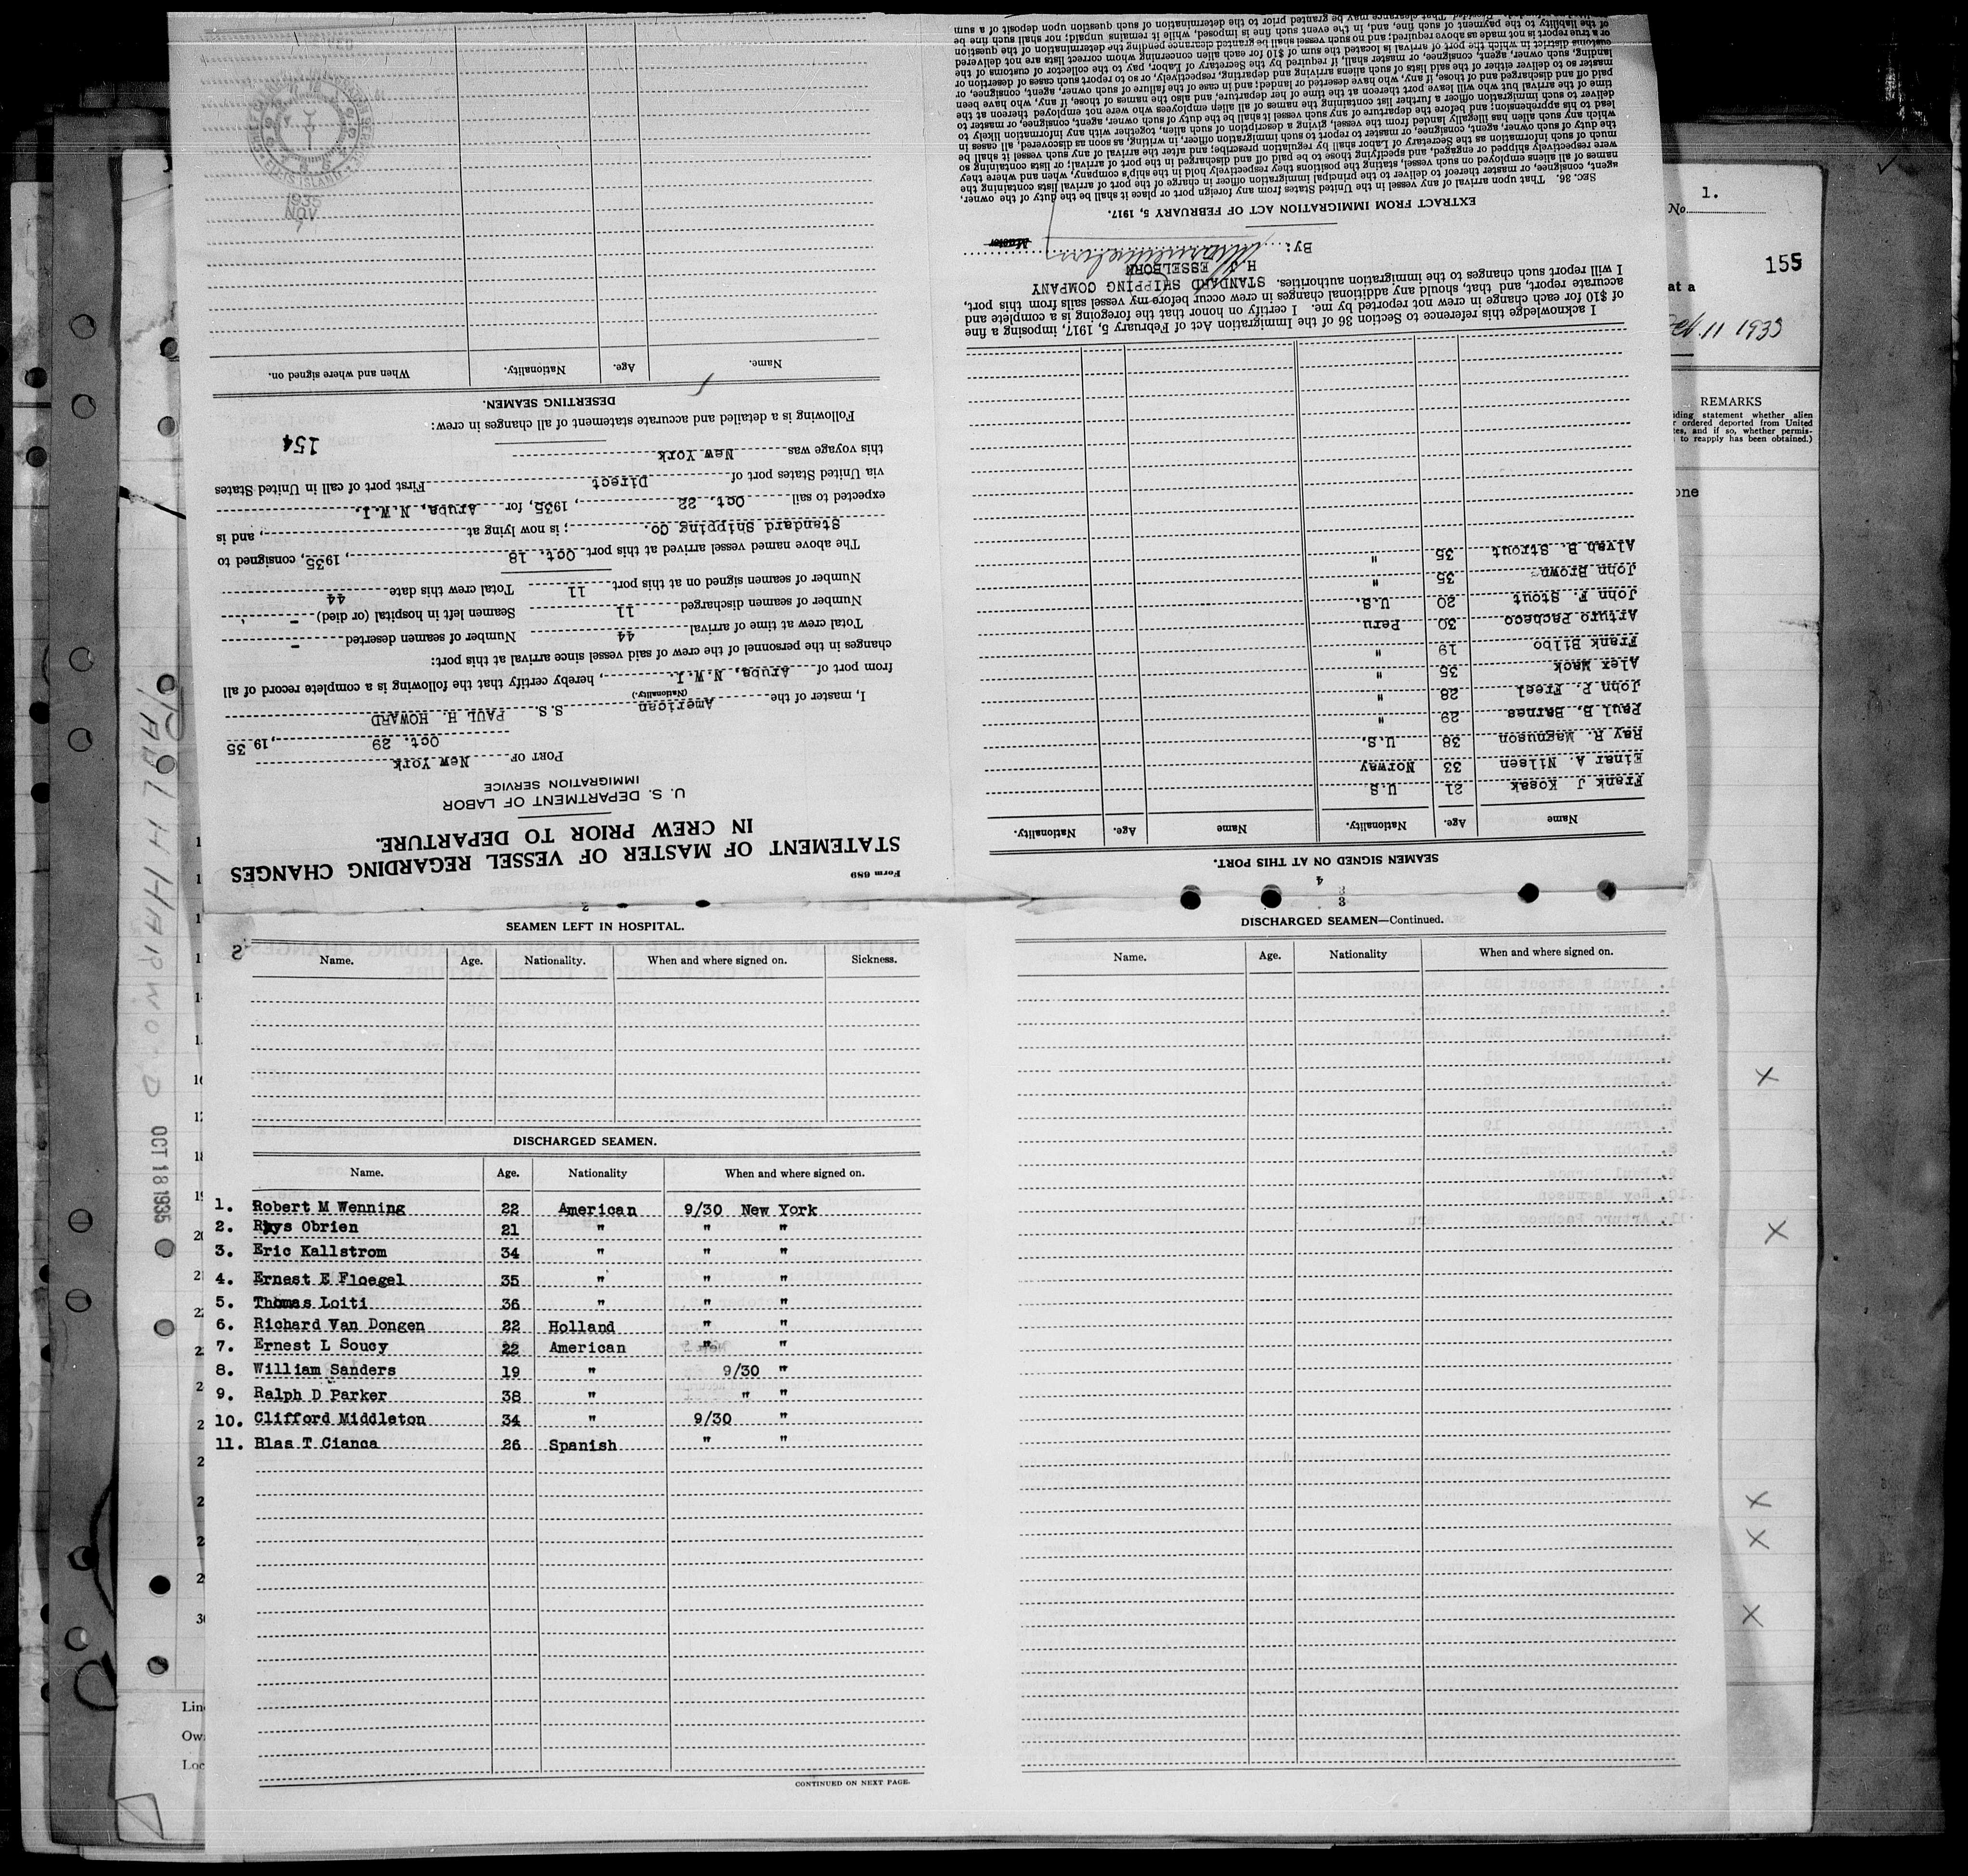 Form 689
STATEMENT OF MASTER OF VESSEL REGARDING CHANGES
IN CREW PRIOR TO DEPARTURE.
U. S. DEPARTMENT OF LABOR
IMMIGRATION SERVICE
PORT OF New York
Oct. 29, 1935
I, master of the American S.S. PAUL H. HOWARD
(Nationality.)
from port of Aruba, N.W.I., hereby certify that the following is a complete record of all
changes in the personnel of the crew of said vessel since arrival at this port:
Total crew at time of arrival 44 Number of seamen deserted -
Number of seamen discharged 11 Seamen left in hospital (or died) -
Number of seamen signed on at this port 11 Total crew this date 44
The above named vessel arrived at this port Oct. 18, 1935, consigned to
Standard Shipping Co.; is now lying at , and is
expected to sail Oct. 22, 1935, for Aruba, N.W.I.
via United States port of Direct First port of call in United States
this voyage was New York
154
Following is a detailed and accurate statement of all changes in crew:
DESERTING SEAMEN.
Name. Age. Nationality. When and where signed on.
1935
NOV
4
SEAMEN SIGNED ON AT THIS PORT.
Name Age. Nationality. Name Age. Nationality.
Frank J Kosak 21 U.S
Einar A. Nilsen 33 Norway
Ray R. Magnuson 38 U.S.
Paul B. Barnes 29 "
John P. Freel 28 "
Alex Mack 35 "
Frank Bilbo 19 "
Arturo Pacheco 30 Peru
John F. Stout 20 U.S.
John Brown 35 "
Alvah B. Strout 35 "
I acknowledge this reference to Section 36 of the Immigration Act of February 5, 1917, imposing a fine
of $10 for each change in crew not reported by me. I certify on honor that the foregoing is a complete and
accurate report, and that, should any additional changes in crew occur before my vessel sails from this port,
I will report such changes to the immigration authorities. STANDARD SHIPPING COMPANY
H J ESSELBORN
By: Master
EXTRACT FROM IMMIGRATION ACT OF FEBRUARY 5, 1917.
SEC. 36. That upon arrival of any vessel in the United States from any foreign port or place it shall be the duty of the owner,
agent, consignee, or master thereof to deliver to the principal immigration officer in charge of the port of arrival lists containing the
names of all aliens employed on such vessel, stating the positions they respectively hold in the ship's company, when and where they
were respectively shipped or engaged, and specifying those to be paid off and discharged in the port of arrival; or lists containing so
much of such information as the Secretary of Labor shall by regulation prescribe; and after the arrival of any such vessel it shall be
the duty of such owner, agent, consignee, or master to report to such immigration officer, in writing, as soon as discovered, all cases in
which any such alien has illegally landed from the vessel, giving a description of such alien, together with any information likely to
lead to his apprehension; and before the departure of any such vessel it shall be the duty of such owner, agent, consignee, or master to
deliver to such immigration officer a further list containing the names of all alien employees who were not employed thereon at the
time of the arrival but who will leave port thereon at the time of her departure, and also the names of those, if any, who have been
paid off and discharged and of those, if any, who have deserted or landed; and in case of the failure of such owner, agent, consignee, or
master so to deliver either of the said lists of such aliens arriving and departing, respectively, or so to report such cases of desertion or
landing, such owner, agent, consignee, or master shall, if required by the Secretary of Labor, pay to the collector of customs of the
customs district in which the port of arrival is located the sum of $10 for each alien concerning whom correct lists are not delivered
or a true report is not made as above required; and no such vessel shall be granted clearance pending the determination of the question
of the liability to the payment of such fine, and, in the event such fine is imposed, while it remains unpaid; nor shall such fine be
2
SEAMEN LEFT IN HOSPITAL.
Name. Age. Nationality. When and where signed on. Sickness.
DISCHARGED SEAMEN.
Name. Age. Nationality When and where signed on.
1. Robert M Wenning 22 American 9/30 New York
2. Rhys Obrien 21 " " "
3. Eric Kallstrom 34 " " "
4. Ernest E Floegel 35 " " "
5. Thomas Loiti 36 " " "
6. Richard Van Dongen 22 Holland " "
7. Ernest L Soucy 22 American " "
8. William Sanders 19 " 9/30 "
9. Ralph D Parker 38 " " "
10. Clifford Middleton 34 " 9/30 "
11. Blas T Cianca 26 Spanish " "
CONTINUED ON NEXT PAGE.
3
DISCHARGED SEAMEN—Continued.
Name. Age. Nationality When and where signed on.
OCT 18 1935
No. 1.
155
at a
11 1935
REMARKS
statement whether alien
ordered deported from United
and if so, whether permis-
to reapply has been obtained.)